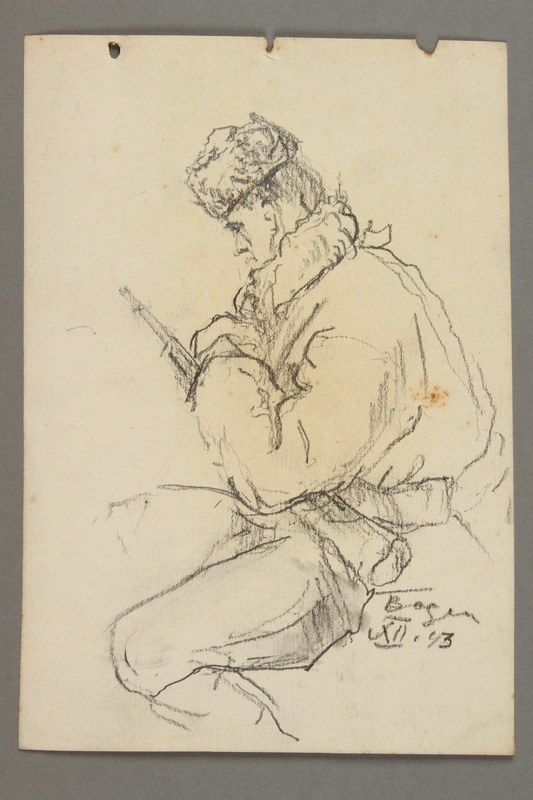 Bogen
XII.43